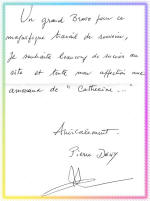 Un grand Bravo pour ce
magnifique travail de souvenir,
Je souhaite beaucoup de succès au
site et toute mon affection aux
amoureux de "Catherine..."
Amicalement.
Pierre